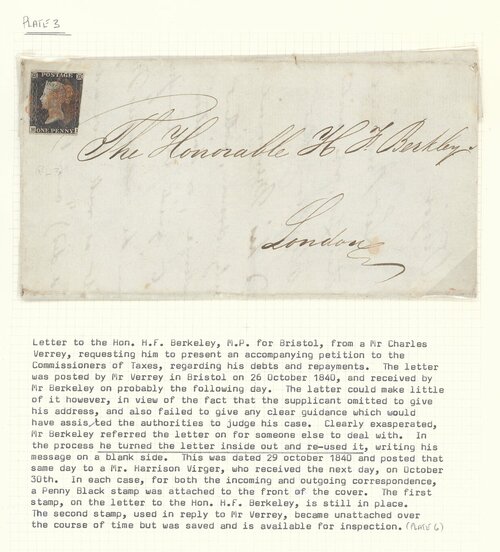 PLATE 3
POSTAGE
ONE PENNY
The Honorable H. F. Berkley
London
Letter to the Hon. H.F. Berkeley, M.P. for Bristol, from a Mr Charles
Verrey, requesting him to present an accompanying petition to the
Commissioners of Taxes, regarding his debts and repayments. The letter
was posted by Mr Verrey in Bristol on 26 October 1840, and received by
Mr Berkeley on probably the following day. The latter could make little
of it however, in view of the fact that the supplicant omitted to give
his address, and also failed to give any clear guidance which would
have assisted the authorities to judge his case. Clearly exasperated,
Mr Berkeley referred the letter on for someone else to deal with. In
the process he turned the letter inside out and re-used it, writing his
message on a blank side. This was dated 29 october 1840 and posted that
same day to a Mr. Harrison Virger, who received the next day, on October
30th. In each case, for both the incoming and outgoing correspondence,
a Penny Black stamp was attached to the front of the cover. The first
stamp, on the letter to the Hon. H.F. Berkeley, is still in place.
The second stamp, used in reply to Mr Verrey, became unattached over
the course of time but was saved and is available for inspection. (PLATE 6)